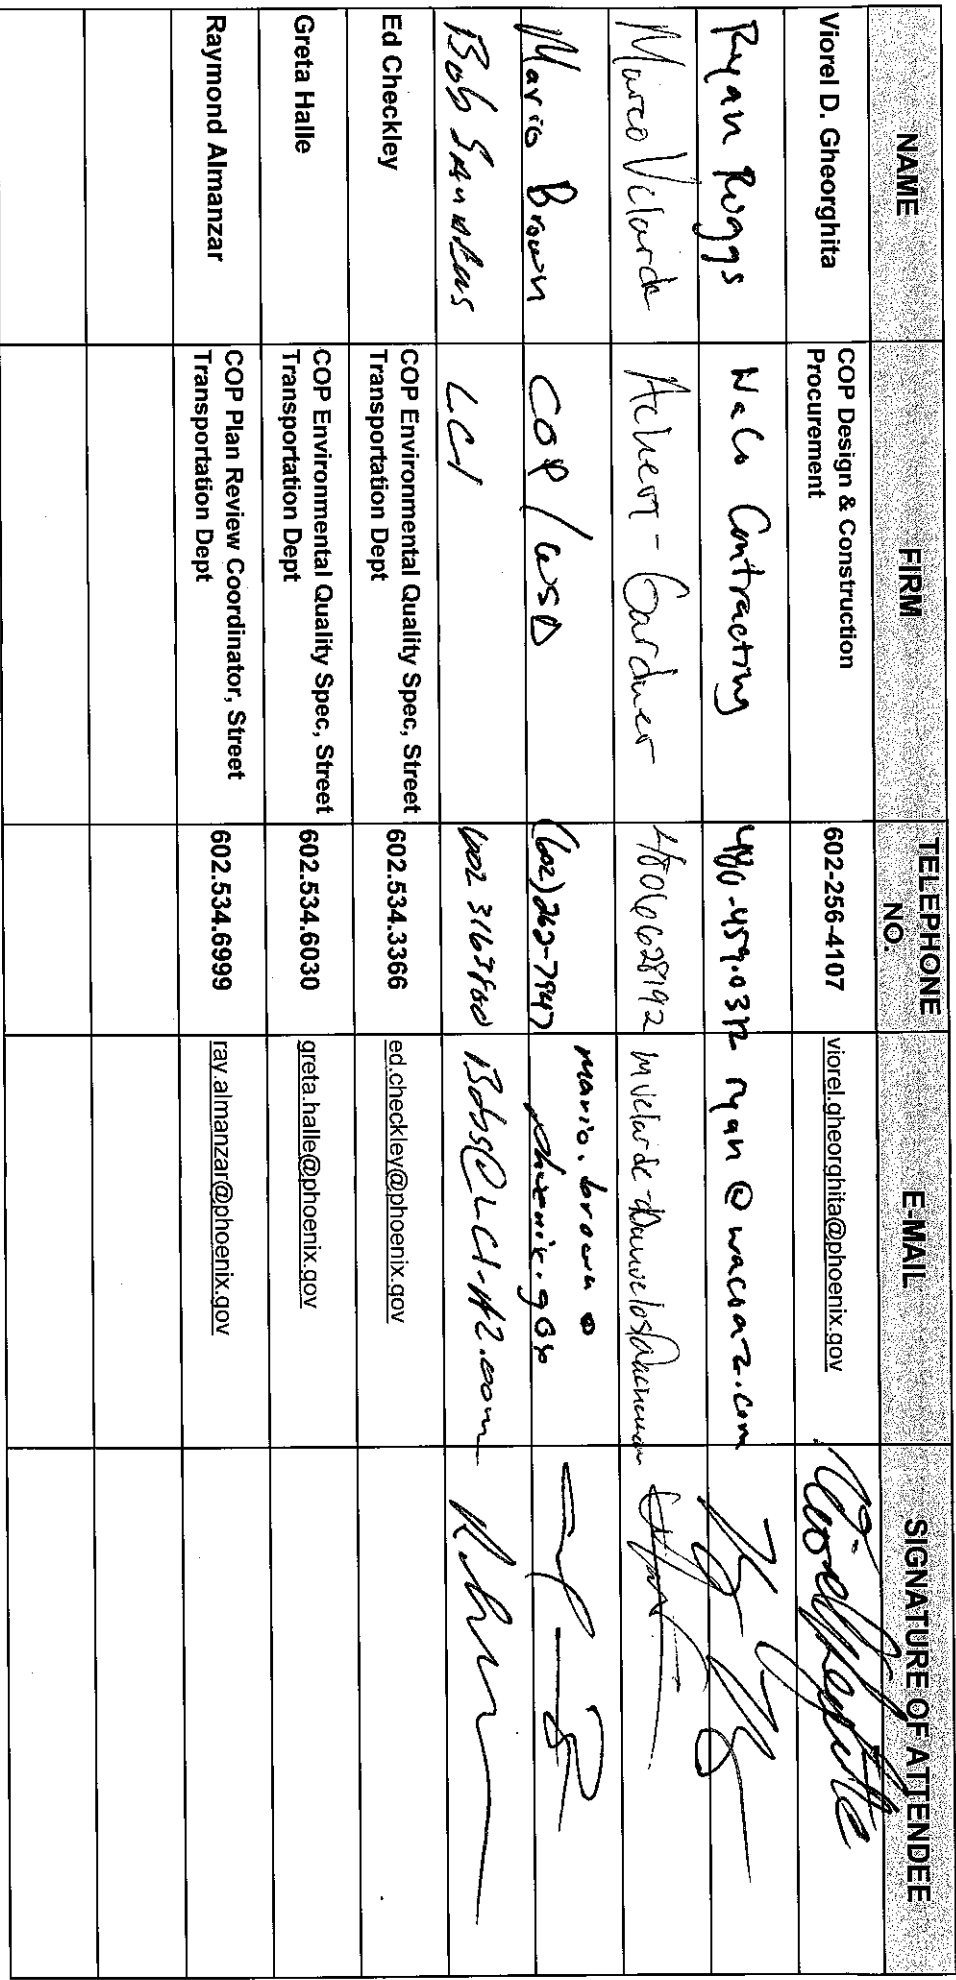 NAME FIRM TELEPHONE NO. E-MAIL SIGNATURE OF ATTENDEE
Viorel D. Gheorghita COP Design & Construction Procurement 602-256-4107 viorel.gheorghita@phoenix.gov
Ryan Riggs WaCo Contracting 480-459.0312 ryan@wacoaz.com
Marco Velarde Achen-Gardner 4806628192
Mario Brown COP/WSD (602) 262-7947 mario.brown@phoenix.gov
Bob Sanders LCI 602 3163800 Bobs@LCI-AZ.com
Ed Checkley COP Environmental Quality Spec, Street Transportation Dept 602.534.3366 ed.checkley@phoenix.gov
Greta Halle COP Environmental Quality Spec, Street Transportation Dept 602.534.6030 greta.halle@phoenix.gov
Raymond Almanzar COP Plan Review Coordinator, Street Transportation Dept 602.534.6999 ray.almanzar@phoenix.gov